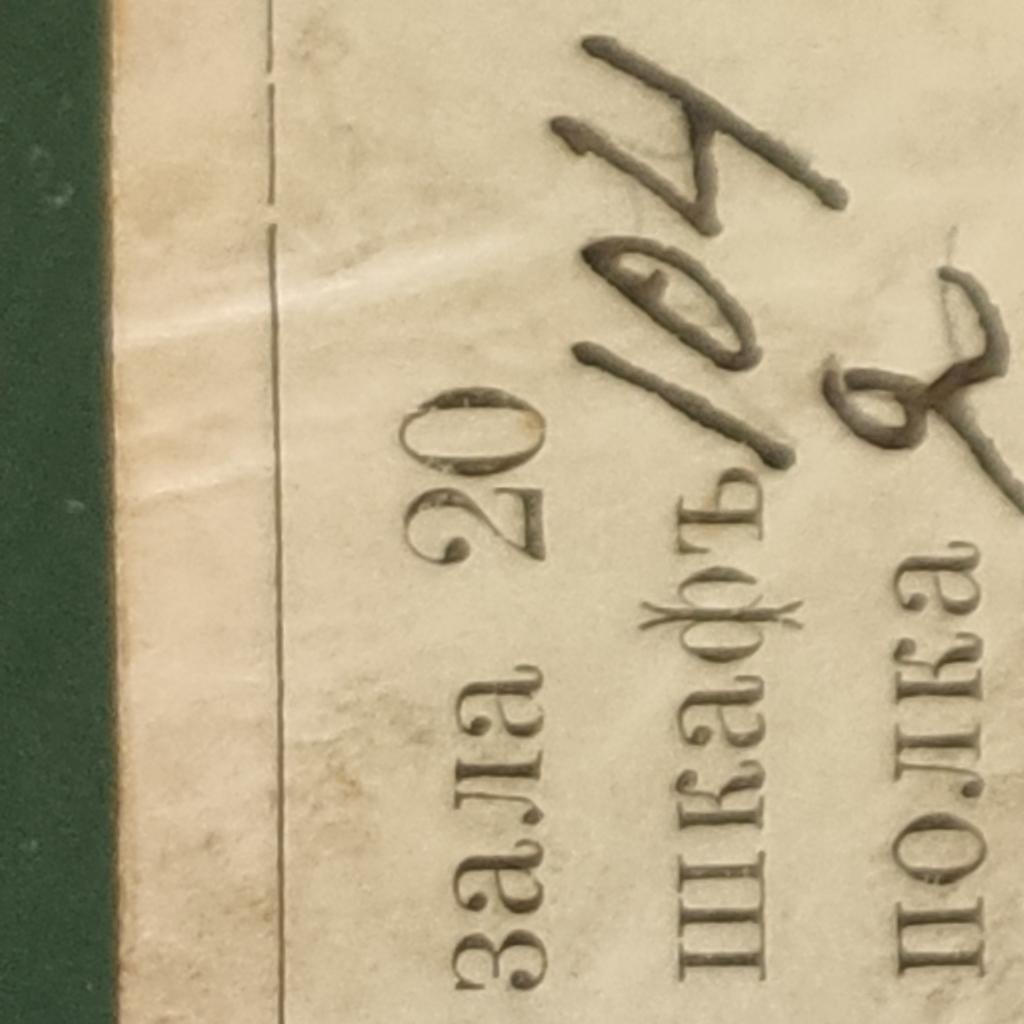 зала 20
шкафъ 104
полка 2